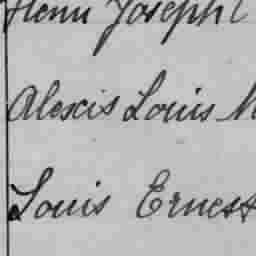 Henri Joseph
Alexis Louis
Louis Ernest